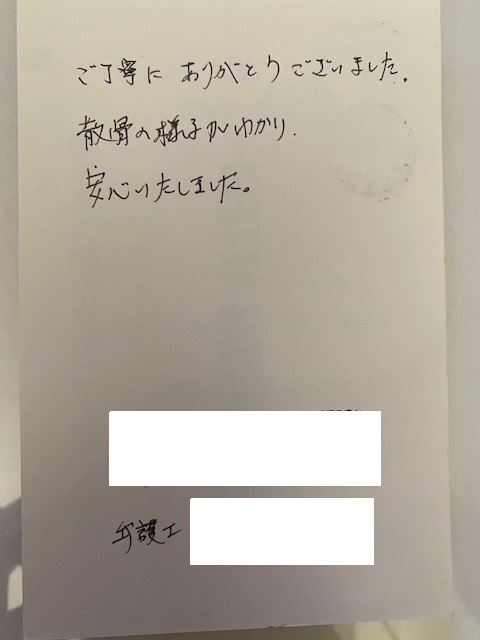 ご丁寧に ありがとうございました.
散骨の様子がわかり.
安心いたしました。
弁護士